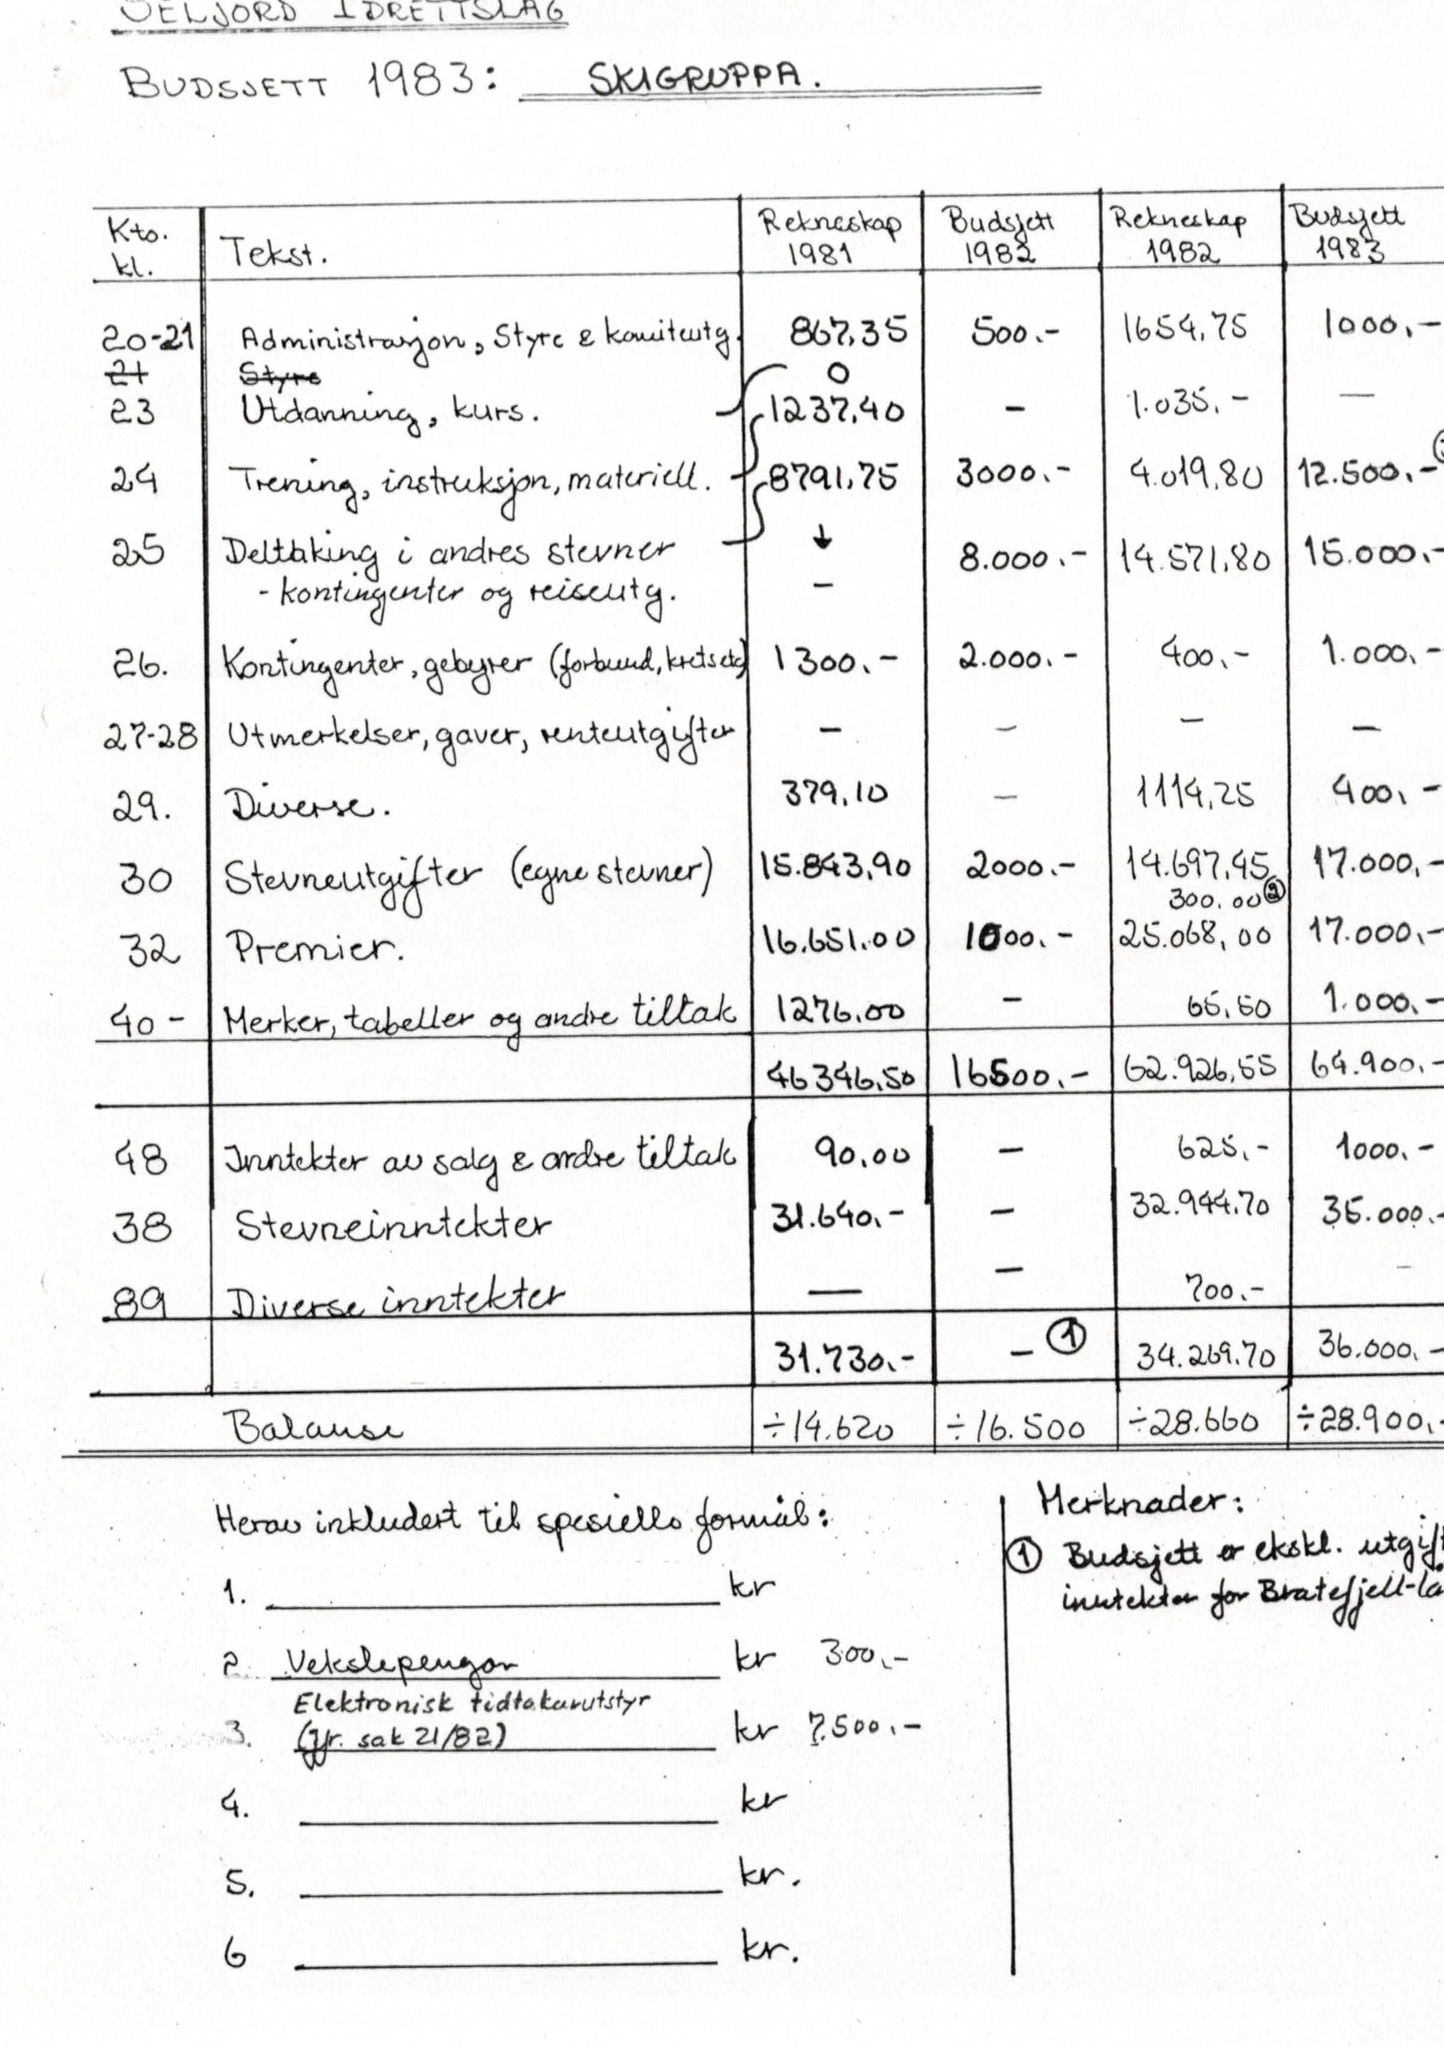 IDRETTSLAG
BUDSJETT 1983: SKIGRUPPA.
Kto. kl. Tekst. Rekneskap 1981 Budsjett 1982 Rekneskap 1982 Budsjett 1983
20-21 Administrasjon, Styre & komiteutg. 867,35 500.- 1654,75 1000,-
21 Styre 0
23 Utdanning, kurs. 1237,40 - 1.035.- -
24 Trening, instruksjon, materiell. 8791,75 3000.- 4.019,80 12.500,-
25 Deltaking i andres stevner ↓ 8.000.- 14.571,80 15.000.-
- kontingenter og reiseutg. -
26. Kontingenter, gebyrer (forbund, krets etc) 1300.- 2.000.- 400,- 1.000,-
27-28 Utmerkelser, gaver, renteutgifter - - - -
29. Diverse. 379,10 - 1114,25 400,-
30 Stevneutgifter (egne stevner) 15.843,90 2000.- 14.697,45 17.000,-
300.00 ②
32 Premier. 16.651.00 1000.- 25.068,00 17.000,-
40- Merker, tabeller og andre tiltak 1276,00 - 65,50 1.000,-
46346,50 16500.- 62.926,55 64.900.-
48 Inntekter av salg & andre tiltak 90,00 - 625,- 1000.-
38 Stevneinntekter 31.640.- - 32.944.70 35.000.-
89 Diverse inntekter - - 700.- -
31.730.- - ① 34.269.70 36.000.-
Balanse ÷14.620 ÷16.500 ÷28.660 ÷28.900,-
Herav inkludert til spesielle formål:
1. kr
2. Vekslepengar kr 300.-
3. Elektronisk tidtakarutstyr
(Jfr. sak 21/82) kr 7.500.-
4. kr
5. kr.
6 kr.
Merknader:
① Budsjett er ekskl. utgift
inntekter for Bratefjell-lø